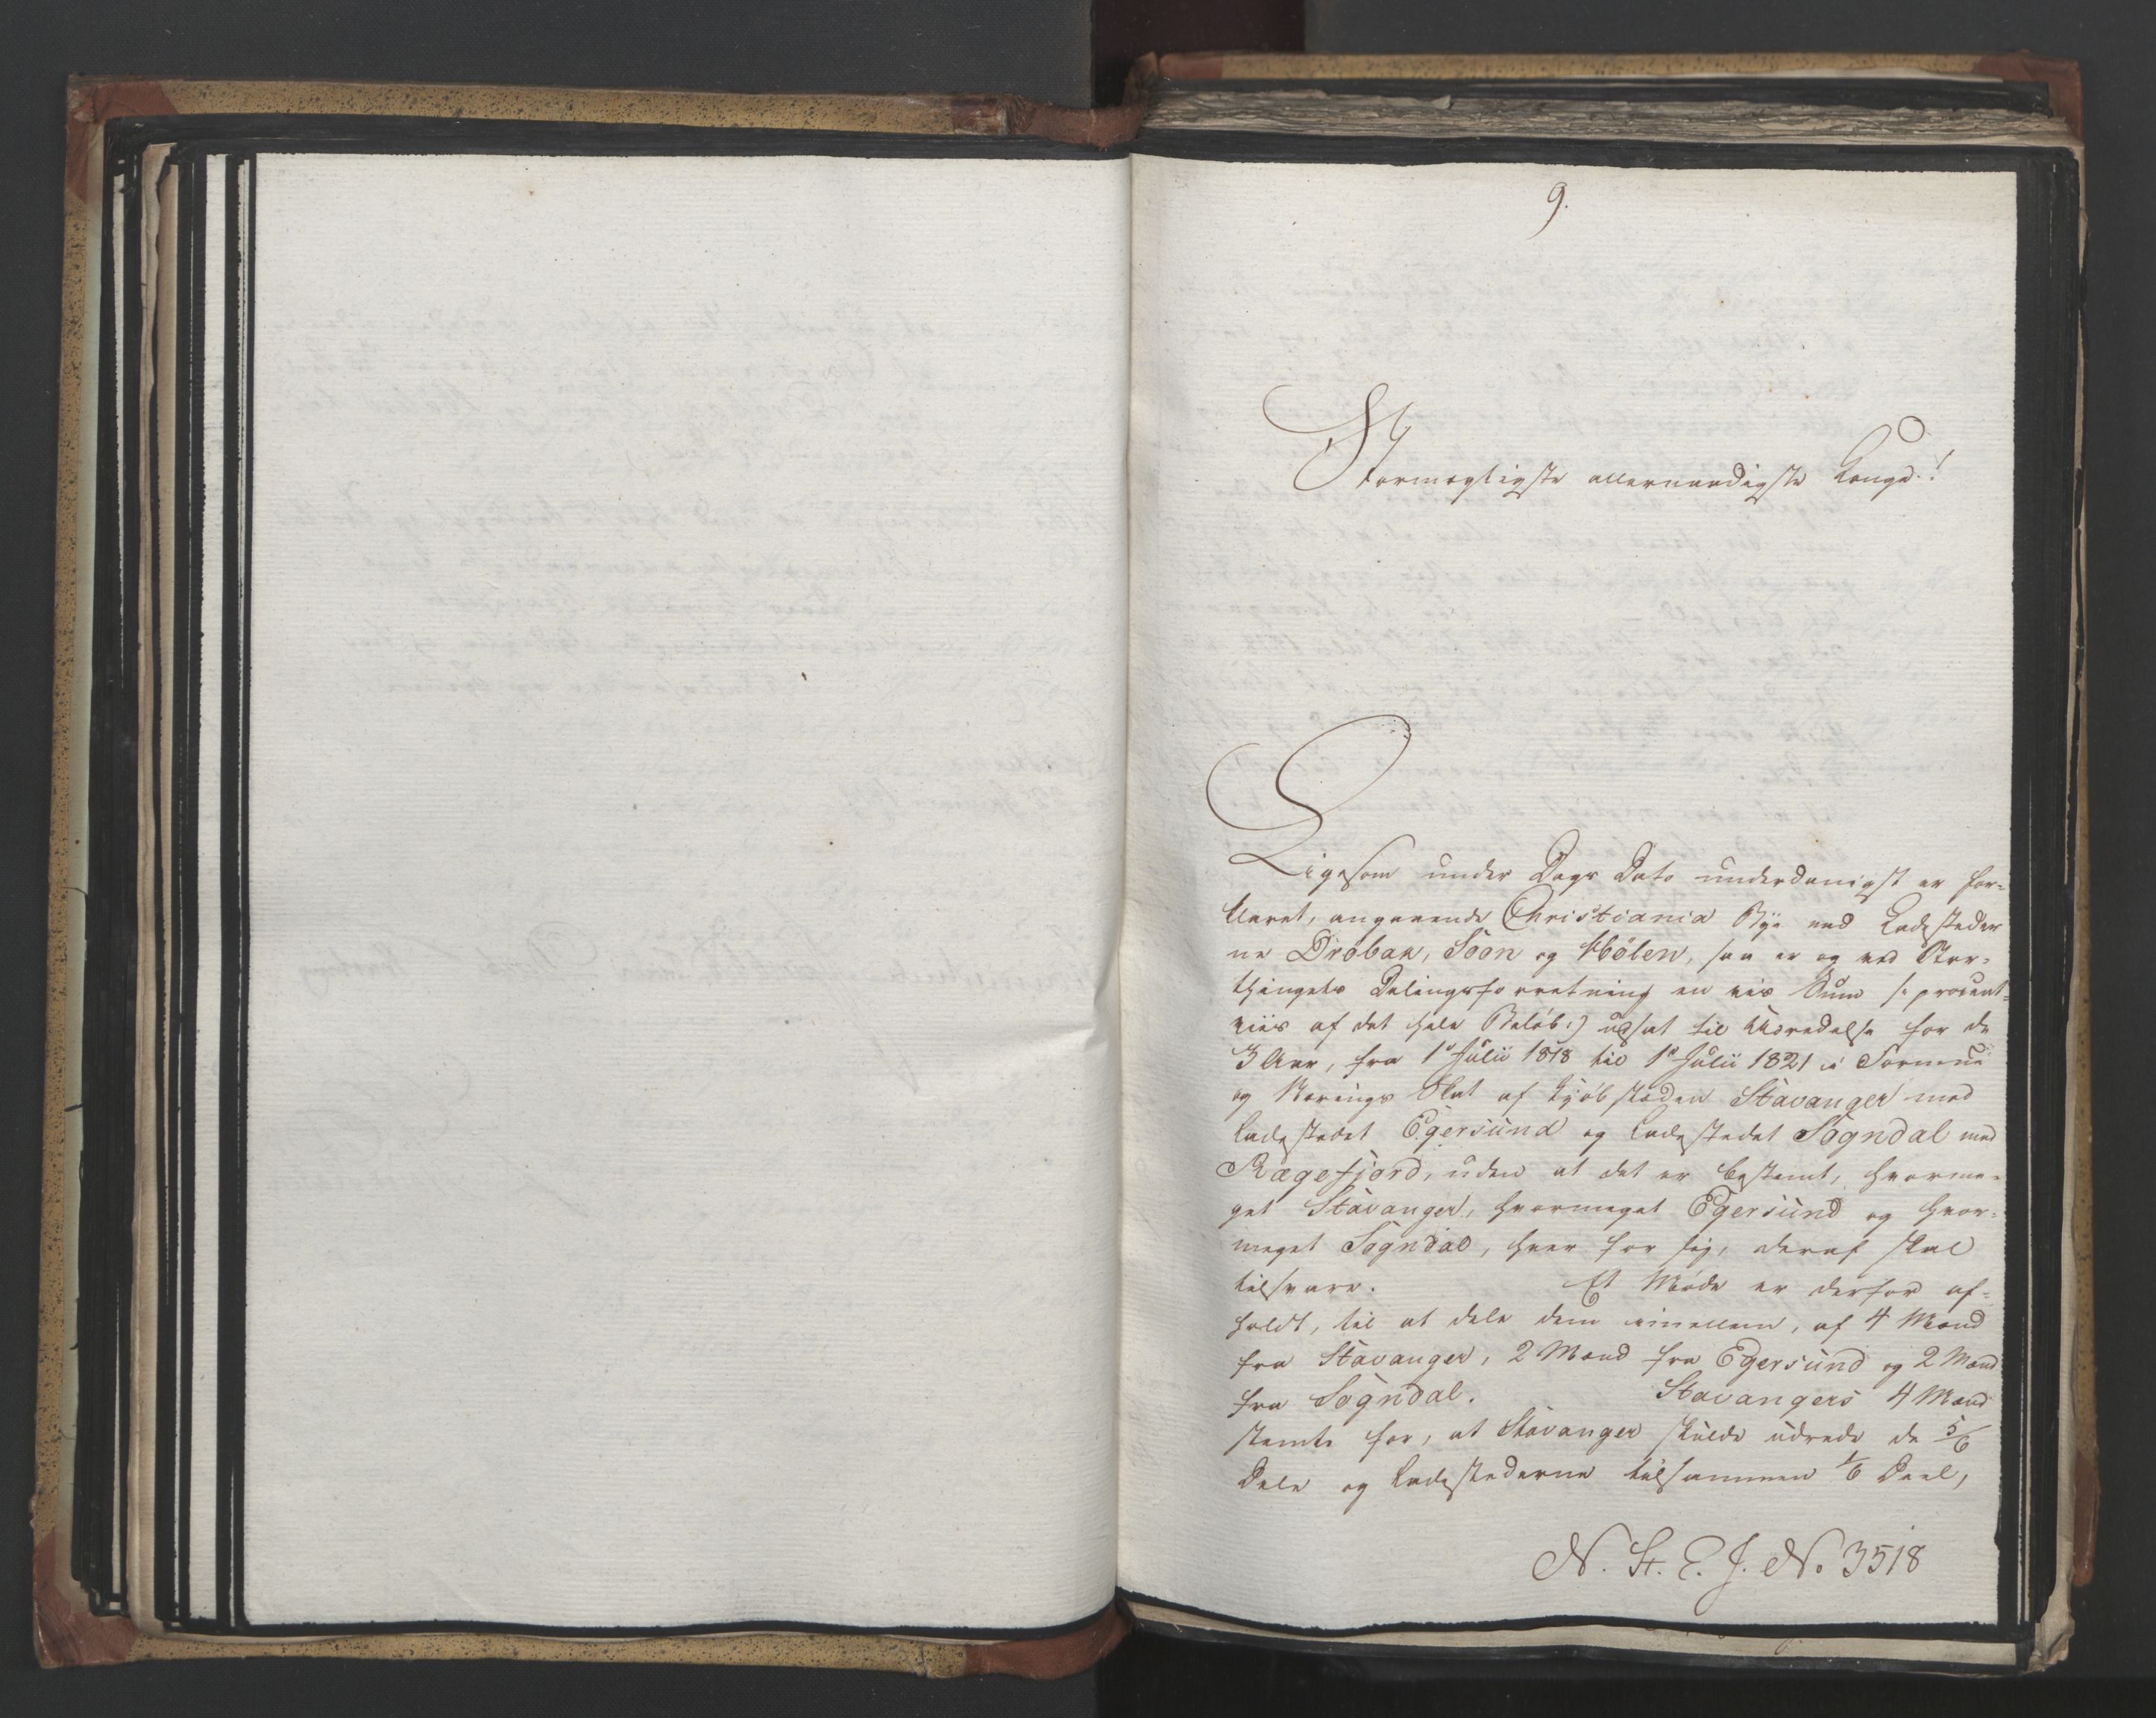 9.
Stormægtigste allernaadigste Konge!
Ligesom under Dags Dato underdanigst er for=
klaret, angaaende Christiania Bye med Ladesteder
ne Drøbak, Soon og Hølen, saa er og ved Stor=
thingets Delingsforretning en vis Sum /: procent=
viis af det hele Beløb:/ udsat til Udredelse for de
3 Aar, fra 1ste Julii 1818 til 1ste Julii 1821 i Formue
og Nærings Skat af Kjøbstæden Stavanger med
Ladestedet Egersund og Ladestedet Sogndal med
Rægefjord, uden at det er bestemt, hvorme=
get Stavanger, hvormeget Egersund og hvor=
meget Sogndal, hver for sig, deraf skal
tilsvare. Et Møde er derfor af=
holdt, til at dele dem imellem, af 4 Mænd
fra Stavanger, 2 Mænd fra Egersund og 2 Mænd
fra Sogndal. Stavangers 4 Mænd
stemte for, at Stavanger skulde udrede de 5/6
Dele og Ladestederne tilsammen 1/6 Deel,
N. St. E. J. No 3518